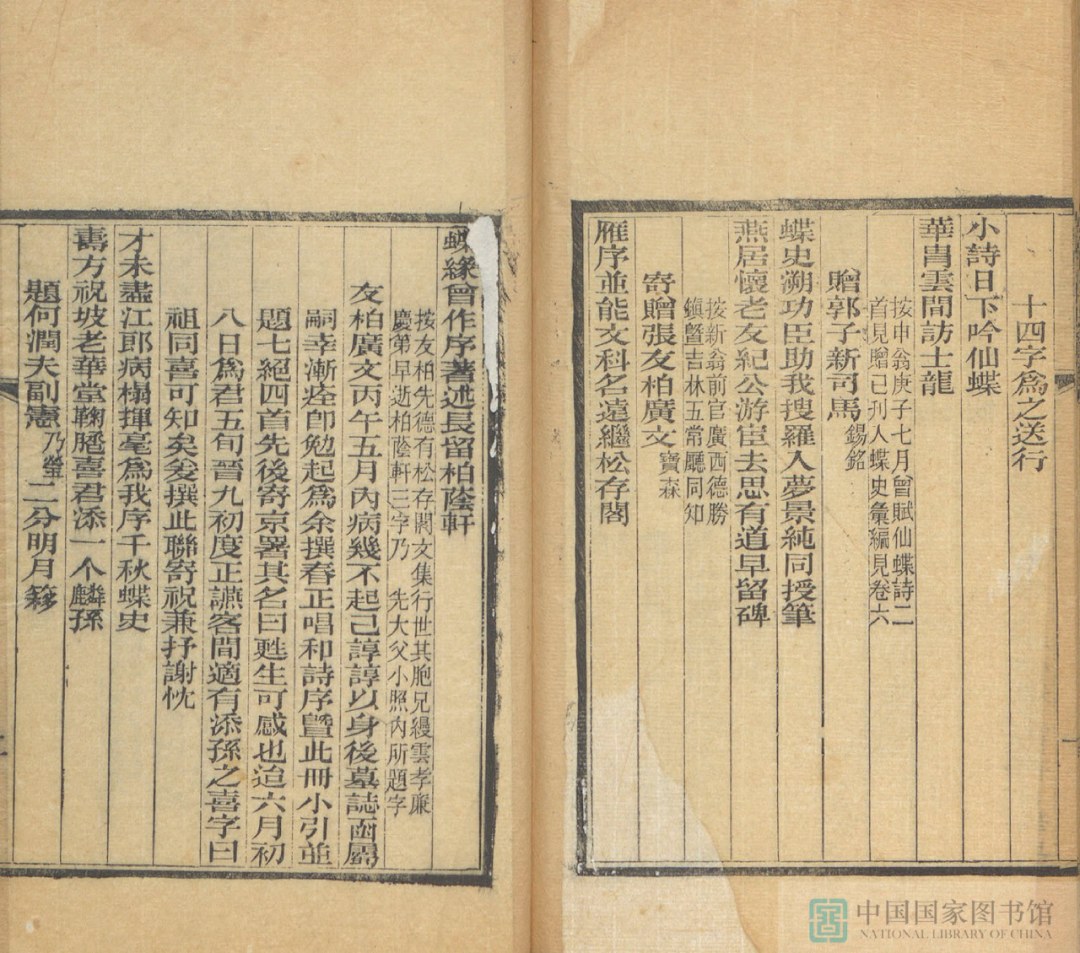 十四字爲之送行
小詩日下吟仙蝶
華胄雲間訪士龍
按申翁庚子七月曾賦仙蝶詩二
首見贈已刋入蝶史彙編見卷六
贈郭子新司馬錫銘
蝶史溯功臣助我搜羅入夢景純同授筆
燕居懷老友紀公游宦去思有道早留碑
按新翁前官廣西德勝
鎮暨吉林五常廳同知
寄贈張友柏廣文寶森
雁序並能文科名遠繼松存閣
蝶緣曾作序著述長留柏蔭軒
按友柏先德有松存閣文集行世其胞兄縵雲孝廉
慶第早逝柏蔭軒三字乃 先大父小照內所題字
友柏廣文丙午五月內病幾不起己諄諄以身後墓誌函屬
嗣幸漸痊卽勉起爲余撰春正唱和詩序暨此冊小引並
題七絕四首先後寄京署其名曰甦生可感也迨六月初
八日爲君五旬晉九初度正讌客間適有添孫之喜字曰
祖同喜可知矣爰撰此聯寄祝兼抒謝忱
才未盡江郎病榻揮毫爲我序千秋蝶史
壽方祝坡老華堂鞠𦜕喜君添一个麟孫
題何潤夫副憲乃瑩二分明月簃
中国国家图书馆
NATIONAL LIBRARY OF CHINA